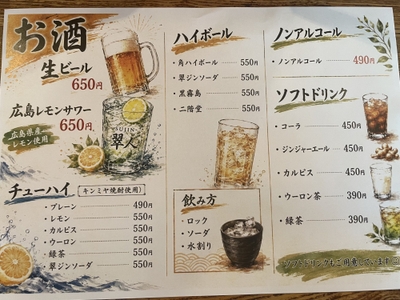 お酒
生ビール
650円
広島レモンサワー
650円
広島県産
レモン使用
翠
チューハイ
（キンミヤ焼酎使用）
・プレーン 490円
・レモン 550円
・カルピス 550円
・ウーロン 550円
・緑茶 550円
・翠ジンソーダ 550円
ハイボール
・角ハイボール 550円
・翠ジンソーダ 550円
・黒霧島 550円
・二階堂 550円
飲み方
・ロック
・ソーダ
・水割り
ノンアルコール
・ノンアルコール 490円
ソフトドリンク
・コーラ 450円
・ジンジャーエール 450円
・カルピス 450円
・ウーロン茶 390円
・緑茶 390円